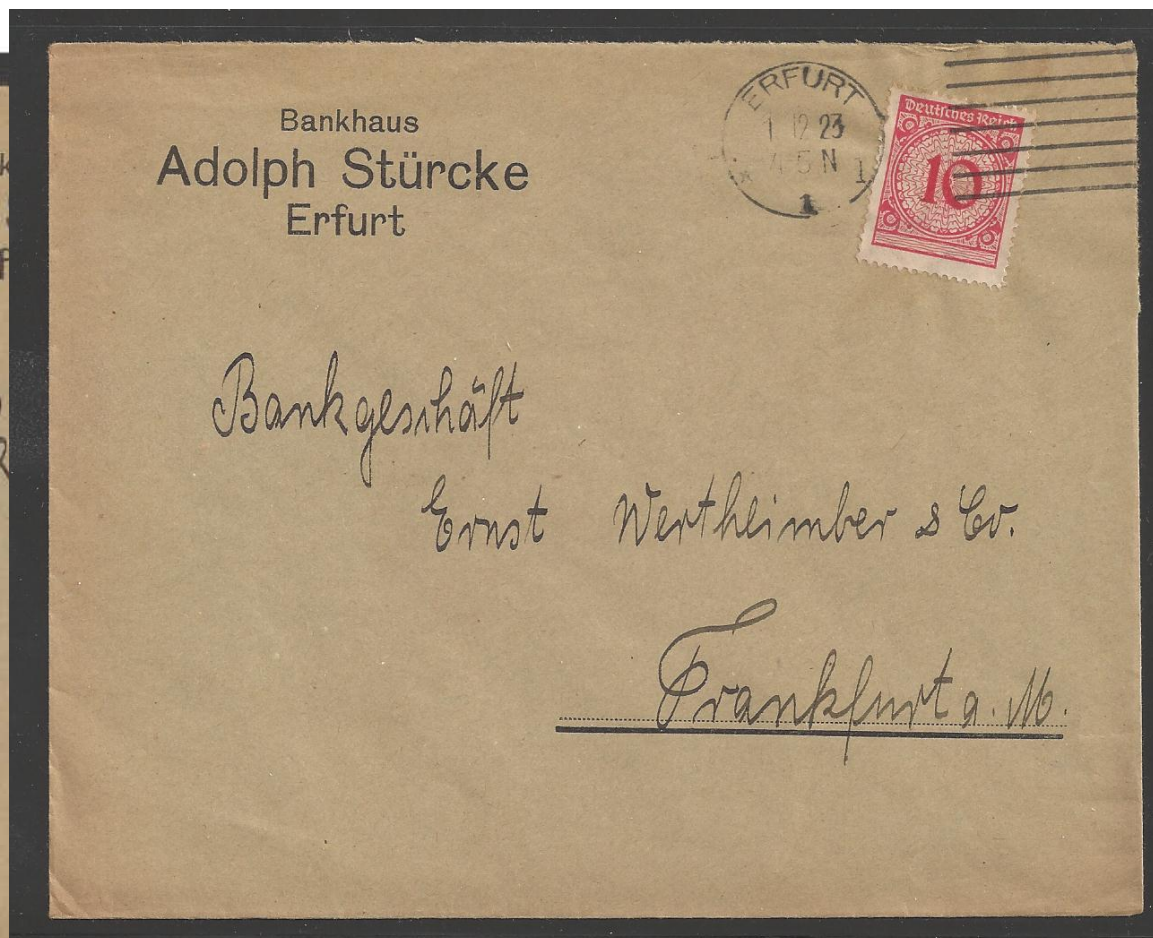 Bankhaus
Adolph Stürcke
Erfurt
ERFURT
1 12 23
4-5 N
1
1
Deutsches Reich
10
Bankgeschäft
Ernst Wertheimber & Co.
Frankfurt a. M.